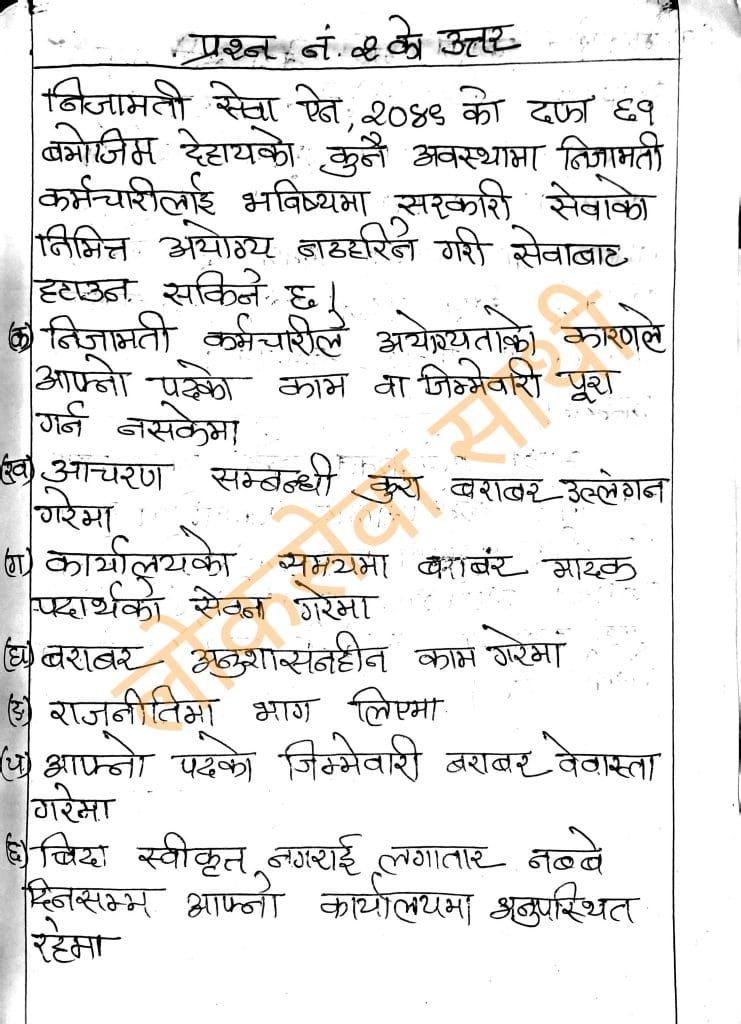 प्रश्न नं. २ को उत्तर
निजामती सेवा ऐन, २०४९ को दफा ६१
बमोजिम देहायको कुनै अवस्थामा निजामती
कर्मचारीलाई भविष्यमा सरकारी सेवाको
निमित्त अयोग्य नठहरिने गरी सेवाबाट
हटाउन सकिने छ।
(क) निजामती कर्मचारीले अयोग्यताको कारणले
आफ्नो पदको काम वा जिम्मेवारी पूरा
गर्न नसकेमा
(ख) आचरण सम्बन्धी कुरा बराबर उल्लंगन
गरेमा
(ग) कार्यालयको समयमा बराबर मादक
पदार्थको सेवन गरेमा
(घ) बराबर अनुशासनहीन काम गरेमा
(ङ) राजनीतिमा भाग लिएमा
(च) आफ्नो पदको जिम्मेवारी बराबर वेवास्ता
गरेमा
(छ) बिदा स्वीकृत नगराई लगातार नब्बे
दिनसम्म आफ्नो कार्यालयमा अनुपस्थित
रहेमा
लोकसेवा साथी